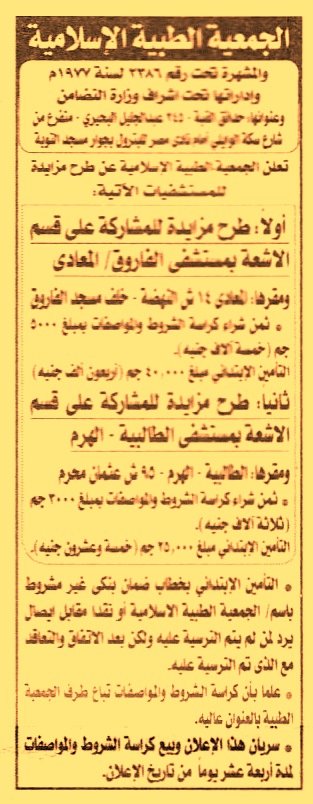 الجمعية الطبية الإسلامية
والمشهرة تحت رقم ٢٣٨٦ لسنة ١٩٧٧م
وإدارتها تحت اشراف وزارة التضامن
وعنوانها: حدائق القبة - ٢٤٥ عبدالجليل البحيري - متفرع من
شارع سكة الوايلي أمام نادى مصر للبترول بجوار مسجد التوبة
تعلن الجمعية الطبية الإسلامية عن طرح مزايدة
للمستشفيات الآتية:
أولاً: طرح مزايدة للمشاركة على قسم
الاشعة بمستشفى الفاروق/ المعادى
ومقرها: المعادى ١٤ ش النهضة - خلف مسجد الفاروق
• ثمن شراء كراسة الشروط والمواصفات بمبلغ ٥٠٠٠
جم (خمسة آلاف جنيه).
التأمين الإبتدائي مبلغ ٤٠,٠٠٠ جم (أربعون ألف جنيه)
ثانيا: طرح مزايدة للمشاركة على قسم
الاشعة بمستشفى الطالبية - الهرم
ومقرها: الطالبية - الهرم - ٩٥ ش عثمان محرم
• ثمن شراء كراسة الشروط والمواصفات بمبلغ ٣٠٠٠ جم
(ثلاثة آلاف جنيه).
التأمين الإبتدائي مبلغ ٢٥,٠٠٠ جم (خمسة وعشرون جنيه).
• التأمين الإبتدائي بخطاب ضمان بنكى غير مشروط
باسم/ الجمعية الطبية الاسلامية أو نقدا مقابل ايصال
يرد لمن لم يتم الترسية عليه ولكن بعد الاتفاق والتعاقد
مع الذى تم الترسية عليه.
• علما بأن كراسة الشروط والمواصفات تباع طرف الجمعية
الطبية بالعنوان عاليه.
• سريان هذا الإعلان وبيع كراسة الشروط والمواصفات
لمدة أربعة عشر يوماً من تاريخ الإعلان.